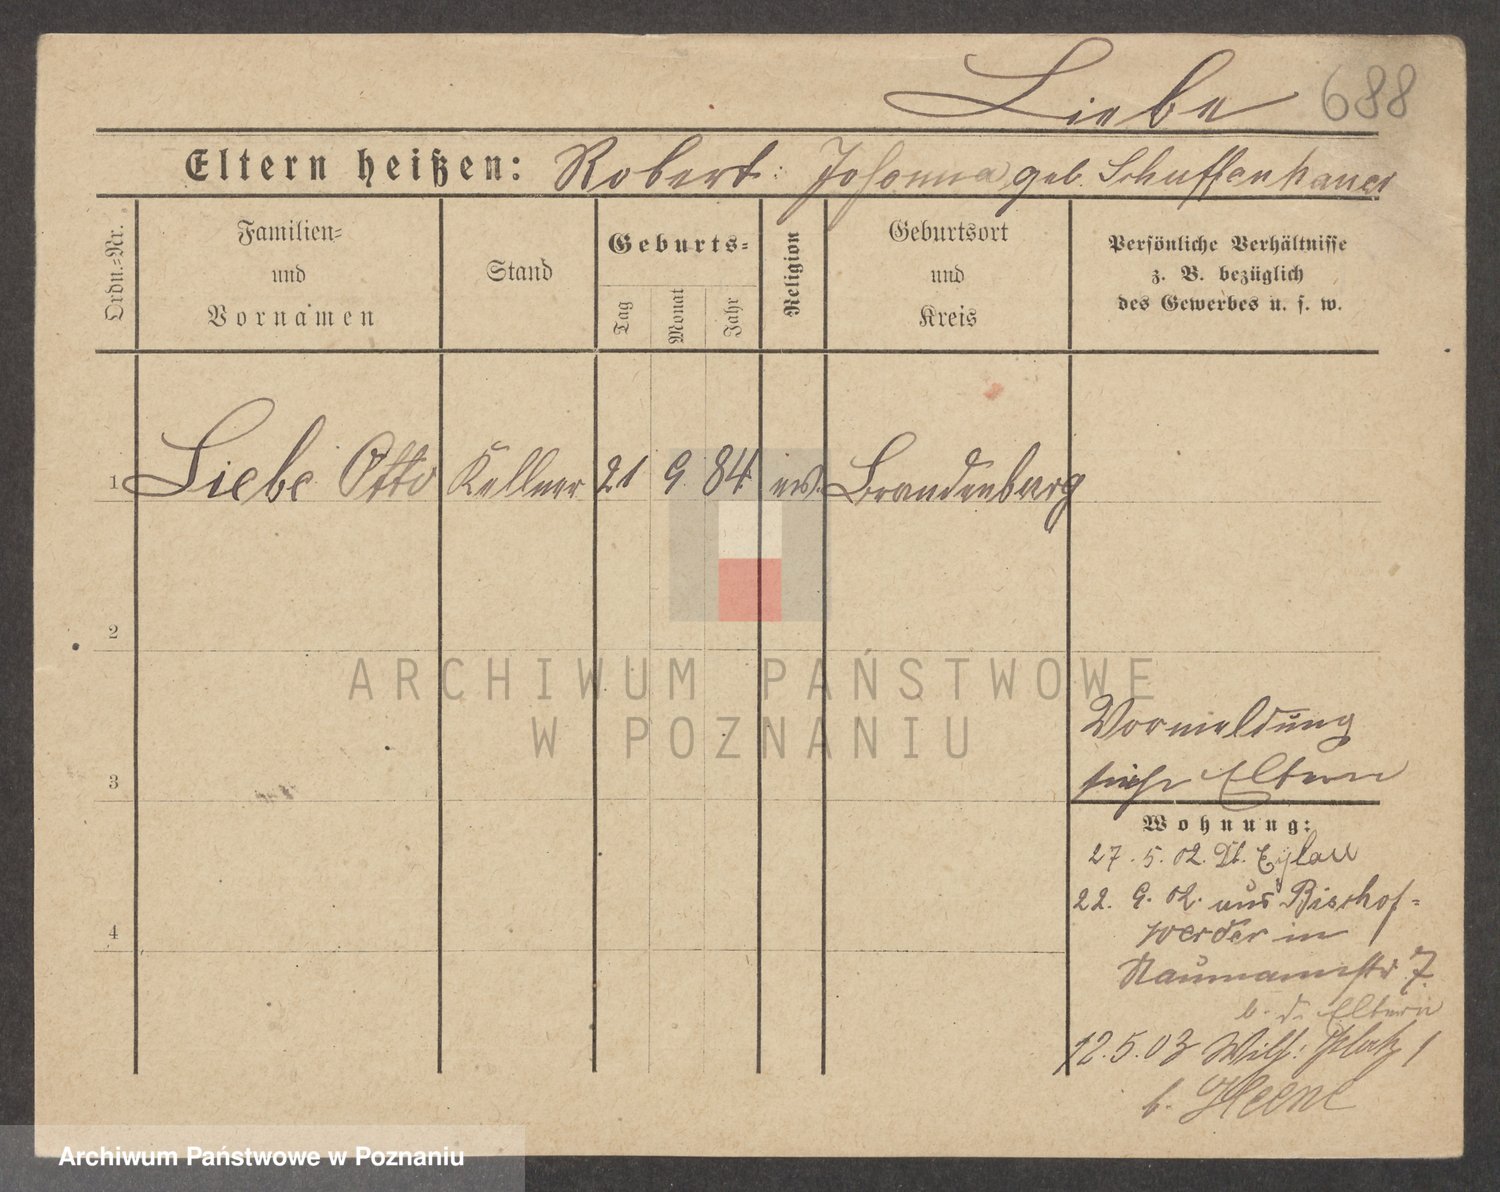 Liebe 688
Eltern heißen: Robert. Johanna geb. Schuffenhauer
Ordn.=Nr.
Familien=
und
Vornamen
Stand
Geburts=
Tag
Monat
Jahr
Religion
Geburtsort
und
Kreis
Persönliche Verhältnisse
z. B. bezüglich
des Gewerbes u. s. w.
1 Liebe Otto Kellner 21 9. 84. ev. Brandenburg
2
ARCHIWUM PAŃSTWOWE
W POZNANIU
Vormeldung
siehe Eltern
3
Wohnung:
27. 5. 02. Dt. Eylau
22. 9. 02. aus Bischof=
4
werder in
Naumannstr 7.
b. d. Eltern
12. 5. 03 Wilh. Platz 1
b.
Archiwum Państwowe w Poznaniu